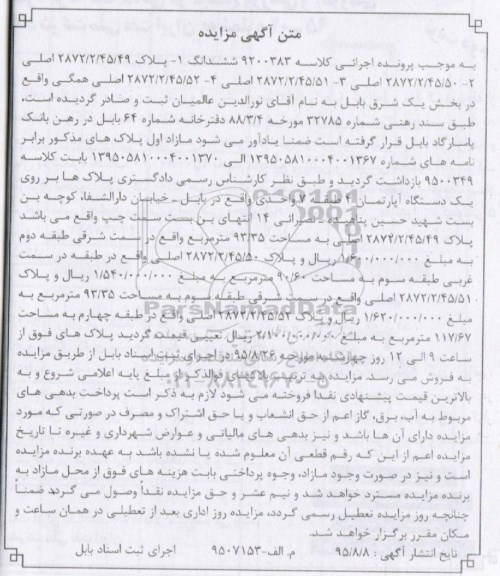 متن آگهی مزایده
به موجب پرونده اجرائی کلاسه ۹۲۰۰۳۸۳ ششدانگ ۱- پلاک ۲۸۷۲/۲/۴۵/۴۹ اصلی
۲- ۲۸۷۲/۲/۴۵/۵۰ اصلی ۳- ۲۸۷۲/۲/۴۵/۵۱ اصلی ۴- ۲۸۷۲/۲/۴۵/۵۲ اصلی همگی واقع
در بخش یک شرق بابل به نام آقای نورالدین عالمیان ثبت و صادر گردیده است،
طبق سند رهنی شماره ۳۲۷۸۵ مورخه ۸۸/۳/۴ دفترخانه شماره ۶۴ بابل در رهن بانک
پاسارگاد بابل قرار گرفته است ضمنا یادآور می شود مازاد اول پلاک های مذکور برابر
نامه های شماره ۱۳۹۵۰۵۸۱۰۰۰۴۰۰۱۳۶۷ الی ۱۳۹۵۰۵۸۱۰۰۰۴۰۰۱۳۷۰ بابت کلاسه
۹۵۰۰۳۴۹ بازداشت گردید و طبق نظر کارشناس رسمی دادگستری پلاک ها بر روی
یک دستگاه آپارتمان ۴ طبقه ۷ واحدی واقع در بابل ـ خیابان دارالشفا، کوچه بن
بست شهید حسین نصرائی ۱۴ انتهای بن بست سمت چپ واقع می باشد
پلاک ۲۸۷۲/۲/۴۵/۴۹ اصلی به مساحت ۹۳/۳۵ مترمربع واقع در سمت شرقی طبقه دوم
به مبلغ ریال و پلاک ۲۸۷۲/۲/۴۵/۵۰ اصلی واقع در طبقه در سمت
غربی طبقه سوم به مساحت ۹۰/۶۰ مترمربع به مبلغ ۱/۵۴۰/۰۰۰/۰۰۰ ریال و پلاک
۲۸۷۲/۲/۴۵/۵۱ اصلی واقع در سمت شرقی طبقه سوم به مساحت ۹۳/۳۵ مترمربع به
مبلغ ۱/۶۲۰/۰۰۰/۰۰۰ ریال و پلاک ۲۸۷۲/۲/۴۵/۵۲ اصلی واقع در طبقه چهارم به مساحت
۱۱۷/۶۷ مترمربع به مبلغ ۲/۱۰۰/۰۰۰/۰۰۰ ریال تعیین قیمت گردید پلاک های فوق از
ساعت ۹ الی ۱۲ روز چهارشنبه مورخه ۹۵/۸/۲۶ در اجرای ثبت اسناد بابل از طریق مزایده
به فروش می رسد. مزایده به ترتیب پلاکهای فوالذکر از مبلغ پایه اعلامی شروع و به
بالاترین قیمت پیشنهادی نقدا فروخته می شود لازم به ذکر است پرداخت بدهی های
مربوط به آب، برق، گاز اعم از حق انشعاب و یا حق اشتراک و مصرف در صورتی که مورد
مزایده دارای آن ها باشد و نیز بدهی های مالیاتی و عوارض شهرداری و غیره تا تاریخ
مزایده اعم از این که رقم قطعی آن معلوم شده یا نشده باشد به عهده برنده مزایده
است و نیز در صورت وجود مازاد، وجوه پرداختی بابت هزینه های فوق از محل مازاد به
برنده مزایده مسترد خواهد شد و نیم عشر و حق مزایده نقداً وصول می گردد ضمناً
چنانچه روز مزایده تعطیل رسمی گردد، مزایده روز اداری بعد از تعطیلی در همان ساعت و
مکان مقرر برگزار خواهد شد.
تاریخ انتشار آگهی : ۹۵/۸/۸ م. الف-۹۵۰۷۱۵۳ اجرای ثبت اسناد بابل
ParsNamadData